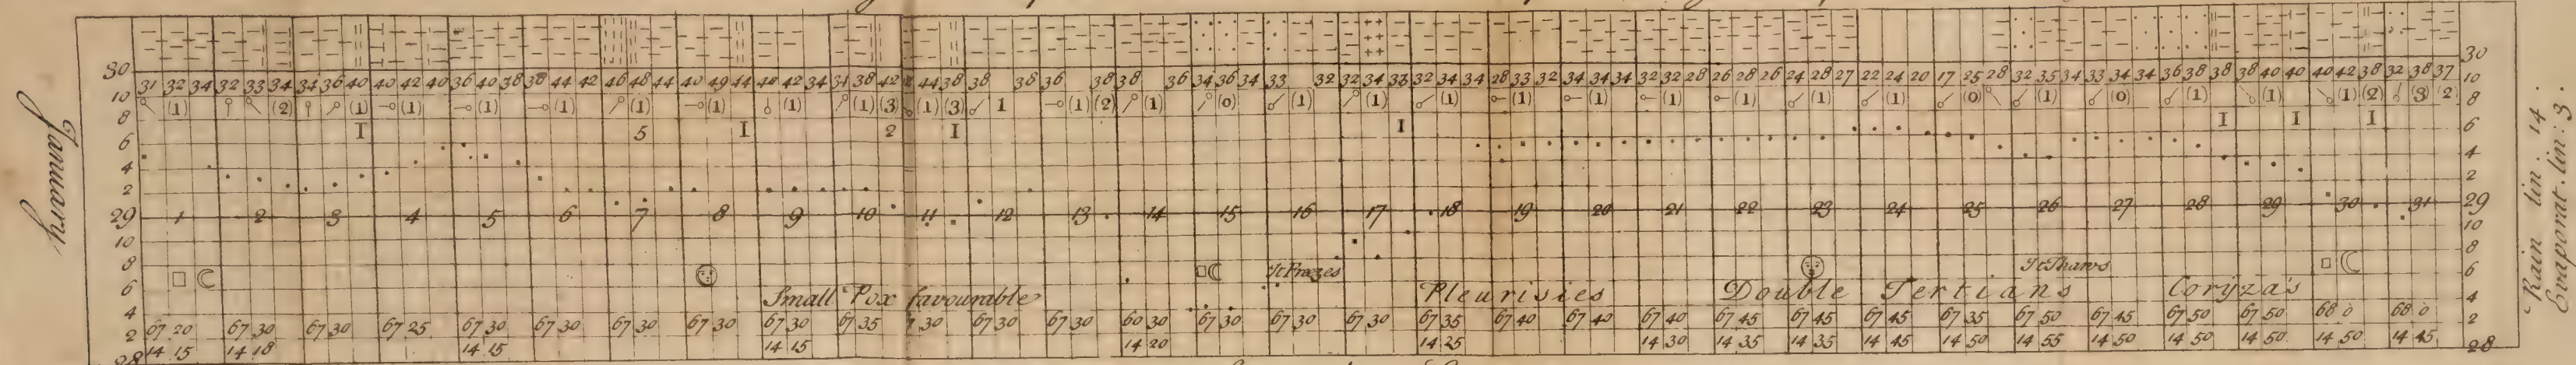 January
30 31 32 34 32 33 34 34 36 40 40 42 40 36 40 38 38 44 42 46 48 44 40 49 44 40 42 34 31 38 42 44 38 38 38 36 38 38 36 34 36 34 33 32 32 34 38 32 34 34 28 33 32 34 34 34 32 32 28 26 28 26 24 28 27 22 24 20 17 25 28 32 35 34 33 34 34 36 38 38 38 40 40 40 42 38 32 38 37 30
10 (1) (2) (1) (1) (1) (1) (1) (1) (1) (1) (3) (1) (3) 1 (1) (2) (1) (0) (1) (1) (1) (1) (1) (1) (1) (1) (1) (0) (1) (0) (1) (1) (1) (2) (3) (2) 10
8 I 5 I 2 I I I I I 8
6 6
4 4
2 2
29 1 2 3 4 5 6 7 8 9 10 11 12 13 14 15 16 17 18 19 20 21 22 23 24 25 26 27 28 29 30 31 29
10 10
8 It Freezes It Thaws 8
6 Small Pox favourable Pleurisies Double Tertians Coryza's 6
4 4
2 67 20 67 30 67 30 67 25 67 30 67 30 67 30 67 30 67 30 67 35 30 67 30 67 30 60 30 67 30 67 30 67 30 67 35 67 40 67 40 67 40 67 45 67 45 67 45 67 35 67 50 67 45 67 50 67 50 68 0 68 0 2
28 14 15 14 18 14 15 14 15 14 20 14 25 14 30 14 35 14 35 14 45 14 50 14 55 14 50 14 50 14 50 14 50 14 45 28
Rain lin 14.
Evaporat. lin: 3.